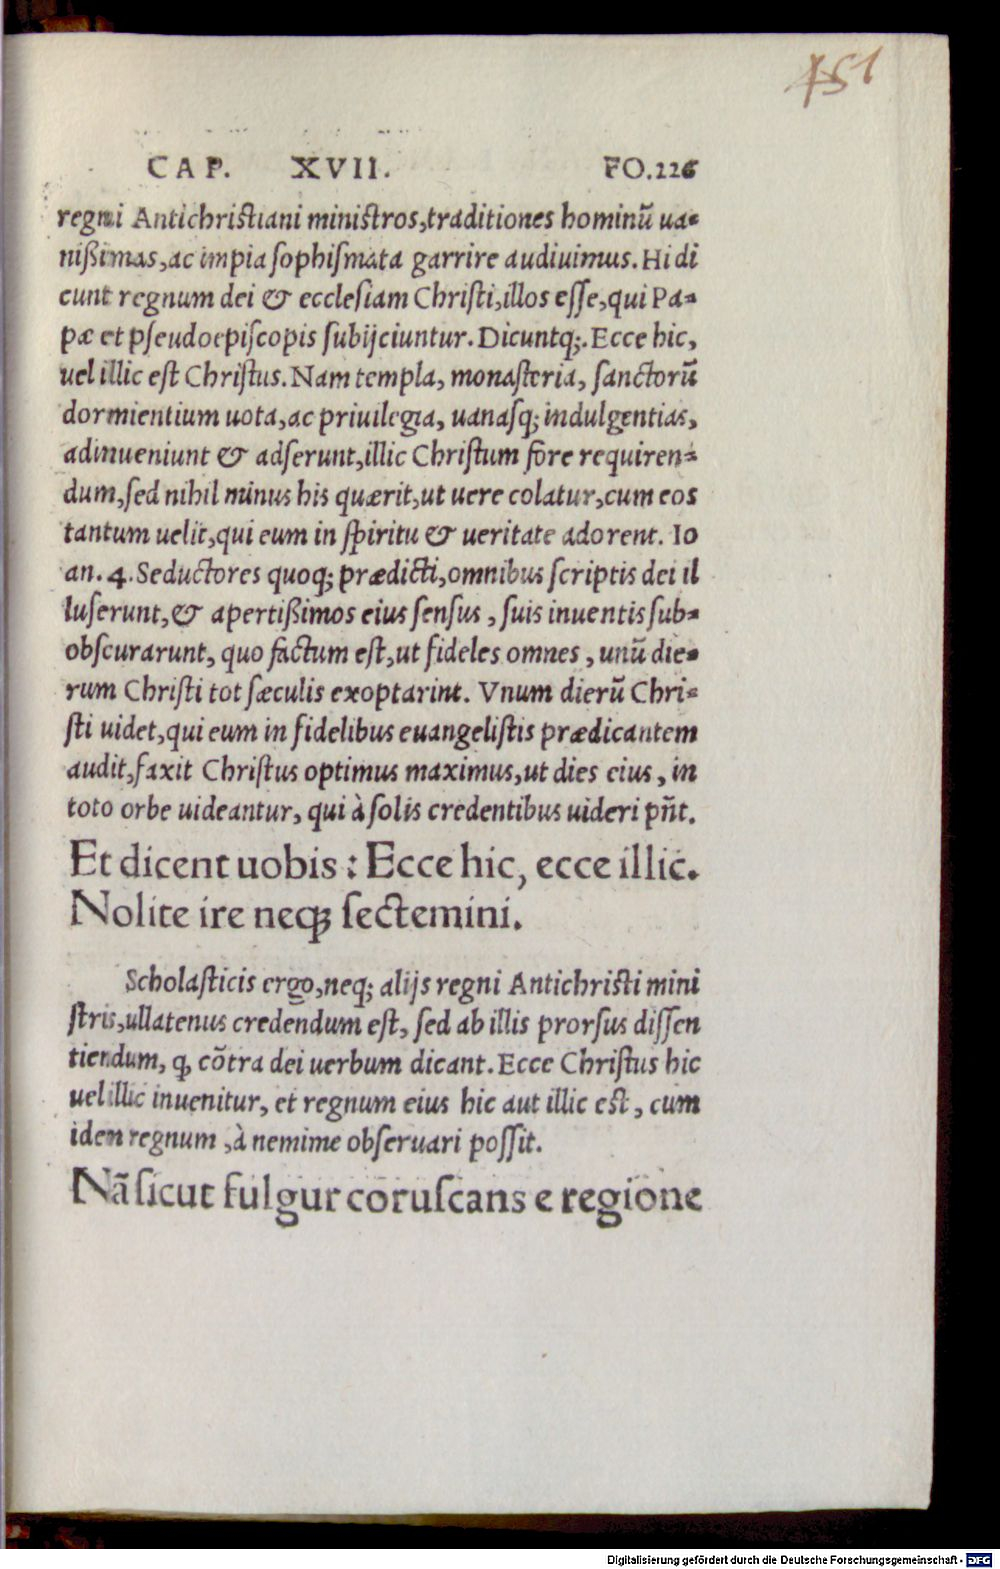 451
CAP. XVII. FO.226
regni Antichristiani ministros,traditiones hominũ ua-
nißimas,ac impia sophismata garrire audiuimus. Hi di
cunt regnum dei & ecclesiam Christi,illos esse,qui Pa-
pæ et pseudoepiscopis subijciuntur. Dicuntq;. Ecce hic,
uel illic est Christus. Nam templa, monasteria, sanctorũ
dormientium uota,ac priuilegia, uanasq; indulgentias,
adinueniunt & adserunt,illic Christum fore requiren-
dum,sed nihil minus his quærit,ut uere colatur,cum eos
tantum uelit,qui eum in spiritu & ueritate adorent. Io
an. 4. Seductores quoq; prædicti,omnibus scriptis dei il
luserunt,& apertißimos eius sensus , suis inuentis sub-
obscurarunt, quo factum est,ut fideles omnes , unũ die-
rum Christi tot sæculis exoptarint. Vnum dierũ Chri-
sti uidet,qui eum in fidelibus euangelistis prædicantem
audit,faxit Christus optimus maximus,ut dies eius , in
toto orbe uideantur, qui à solis credentibus uideri pñt.
Et dicent uobis : Ecce hic, ecce illic.
Nolite ire neqꝫ sectemini.
Scholasticis ergo,neq; alijs regni Antichristi mini
stris,ullatenus credendum est, sed ab illis prorsus dissen
tiendum, ꝙ cõtra dei uerbum dicant. Ecce Christus hic
uel illic inuenitur, et regnum eius hic aut illic est , cum
iden regnum ,à nemime obseruari possit.
Nã sicut fulgur coruscans e regione
Digitalisierung gefördert durch die Deutsche Forschungsgemeinschaft - DFG